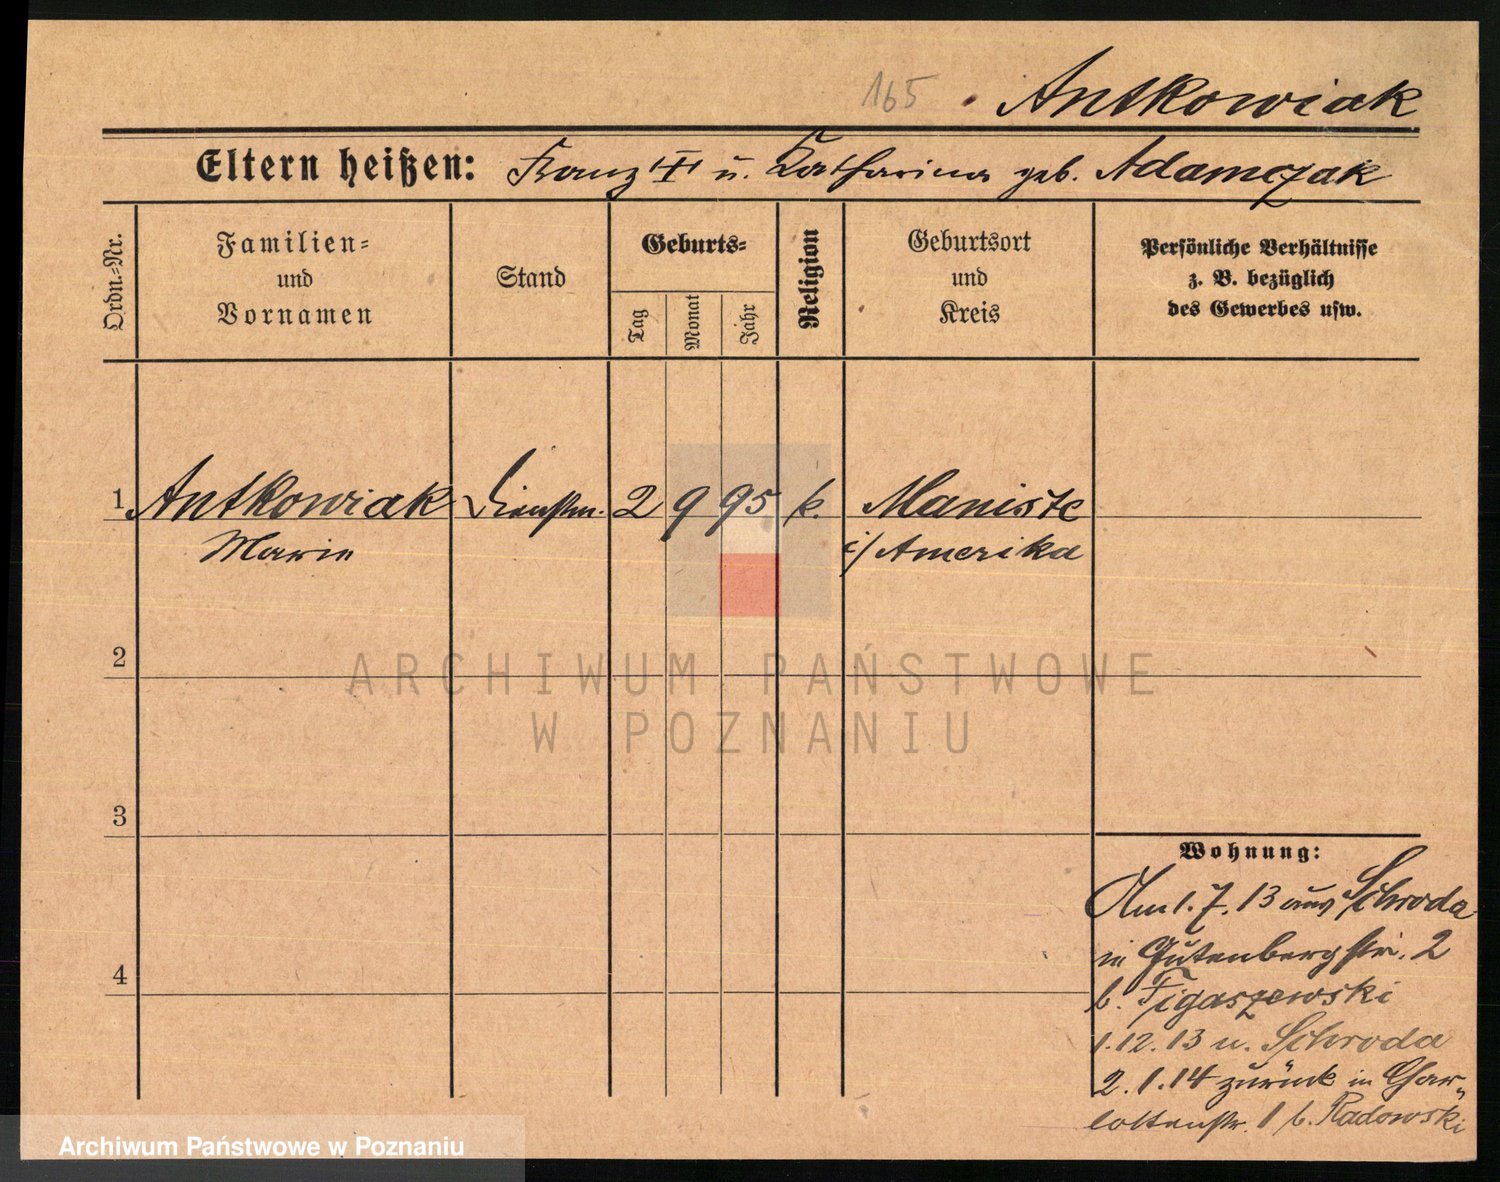 165 Antkowiak
Eltern heißen: Franz † u. Katharina geb. Adamczak
Ordn.-Nr.
Familien-
und
Vornamen
Stand
Geburts-
Tag
Monat
Jahr
Religion
Geburtsort
und
Kreis
Persönliche Verhältnisse
z. B. bezüglich
des Gewerbes usw.
1 Antkowiak Dienstm. 2 9 95 k. Maniste
Marie i/ Amerika
2
ARCHIWUM PAŃSTWOWE
W POZNANIU
3
Wohnung:
Am 1. 7. 13 aus Schroda
in Gutenbergstr. 2
4
b. Figaszewski
1.12.13 n. Schroda
2.1.14 zurück in Char-
lottenstr. 1 b. Radowski
Archiwum Państwowe w Poznaniu